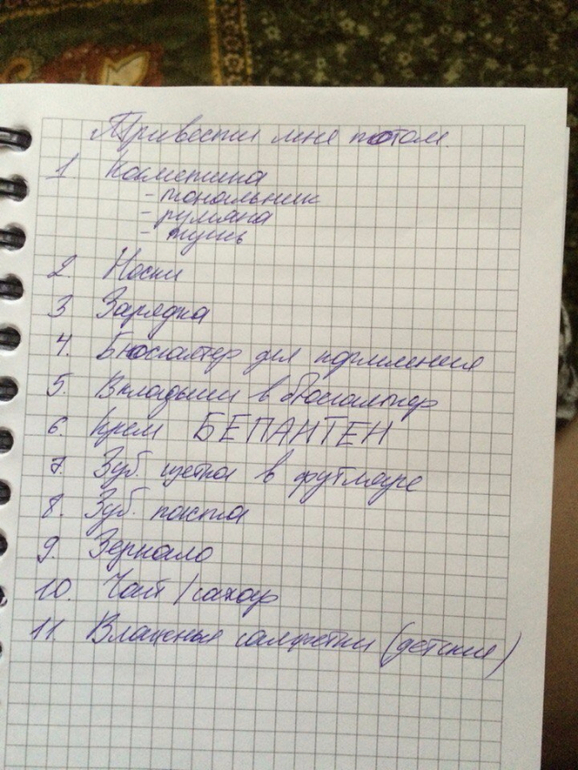 Привести мне потом.
1 Косметика
- тональник
- румяна
- тушь
2 Носки
3 Зарядка
4. Бюсгалтер для кормления
5. Вкладыши в бюсгальтер
6. Крем БЕПАНТЕН
7. Зуб. щетка в футляре
8. Зуб. паста
9. Зеркало
10. Чай / сахар
11. Влажные салфетки (детские)